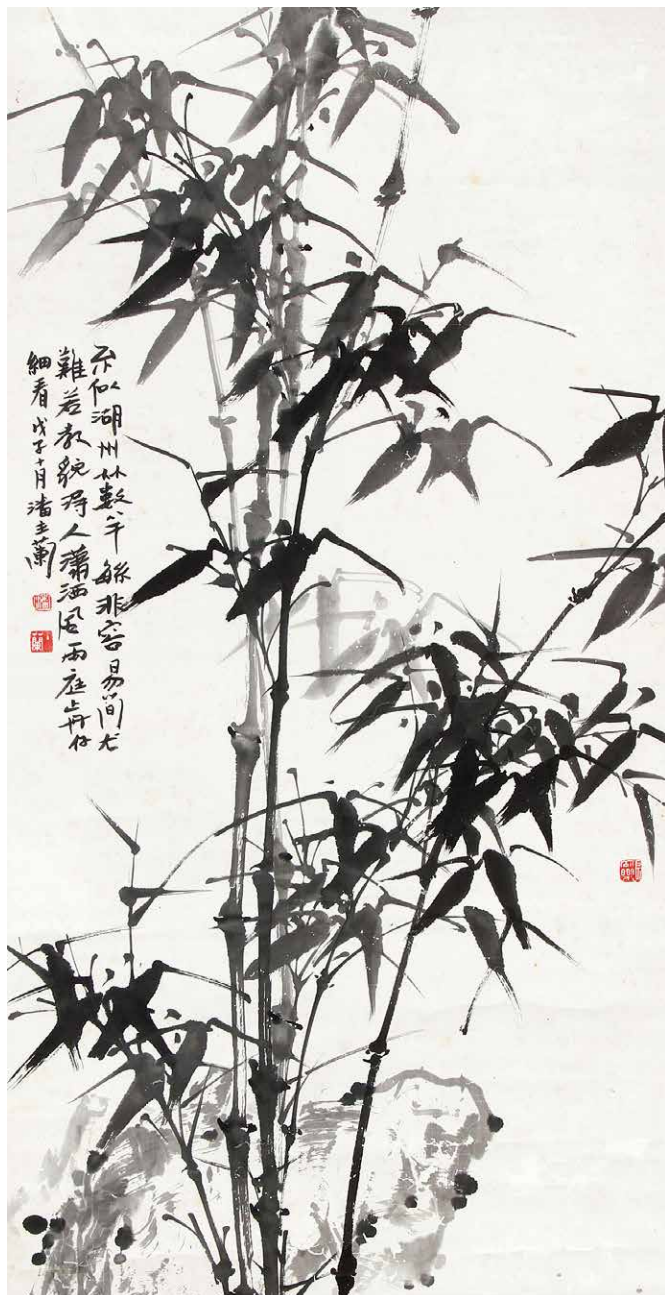 不似湖州竹數竿緐非容易簡尤
難若教貌得人瀟洒風雨庭歬仔
細看 戊子十月潘主蘭